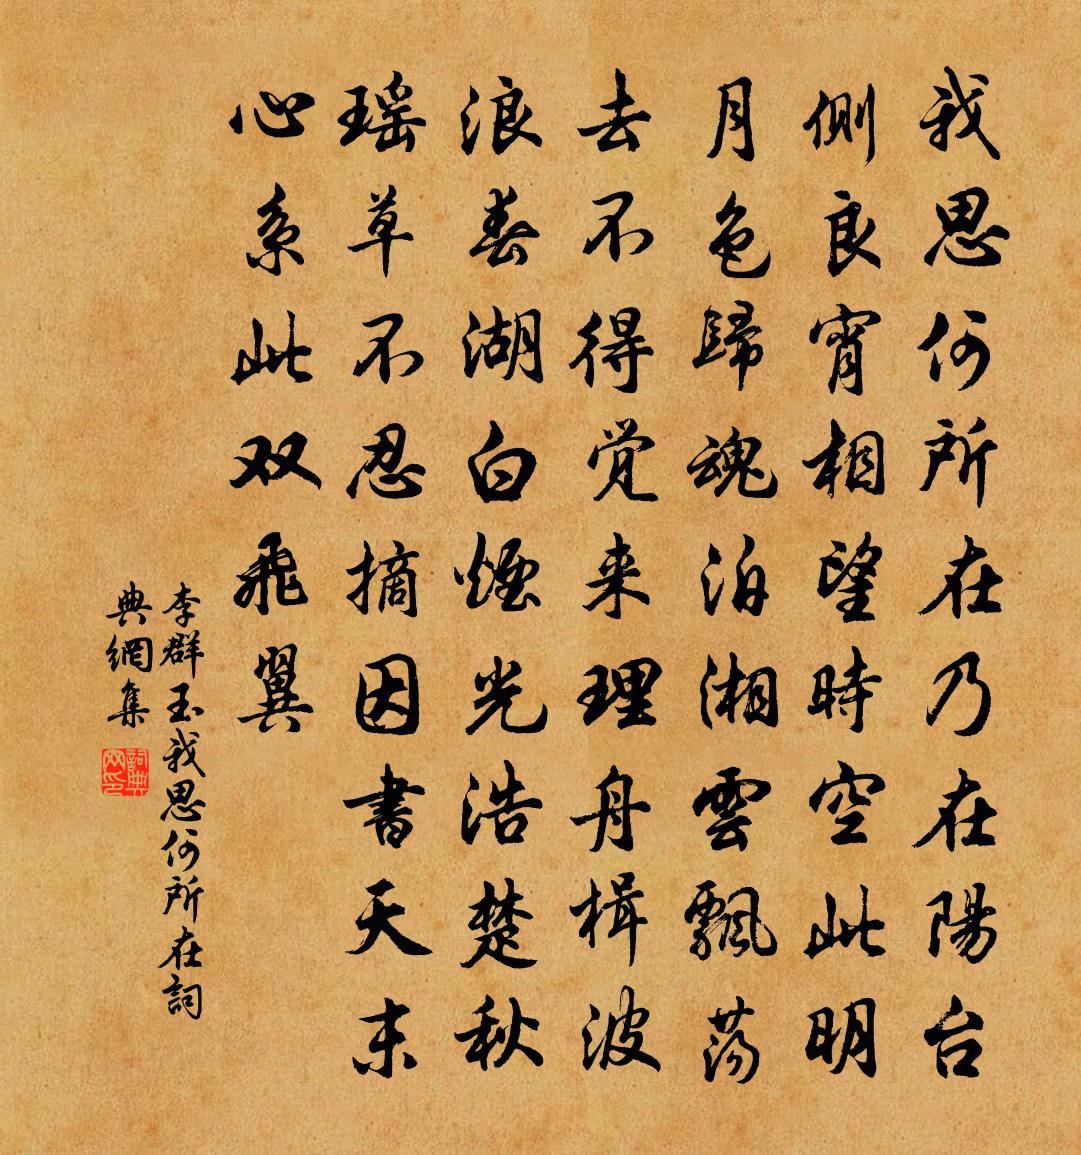 我思何所在乃在陽台
側良宵相望時空此明
月色歸魂泊湘雲飄蕩
去不得觉来理舟楫波
浪春湖白煙光浩楚秋
瑶草不忍摘因書天末
心系此双飛翼
李群玉我思何所在詞
典網集
詞典
网印